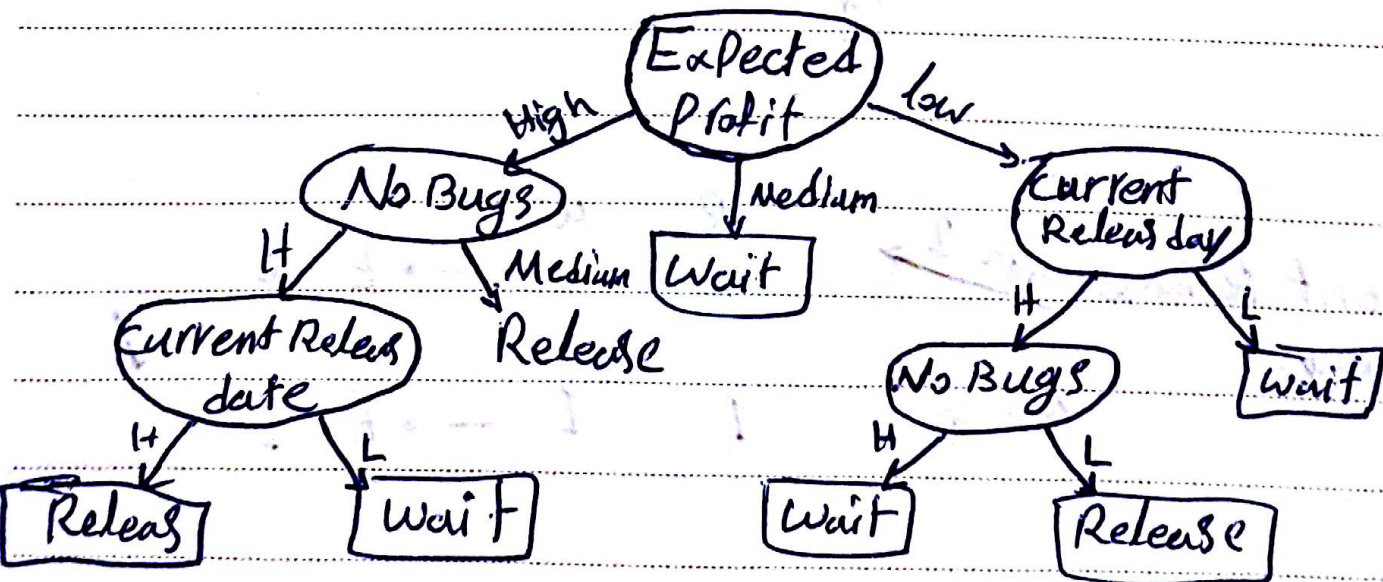 Expected
Profit
High
low
No Bugs
Medium
Current
Releas day
H
Medium
Wait
H
L
Current Releas
date
Release
No Bugs
wait
H
L
H
L
Releas
Wait
Wait
Release